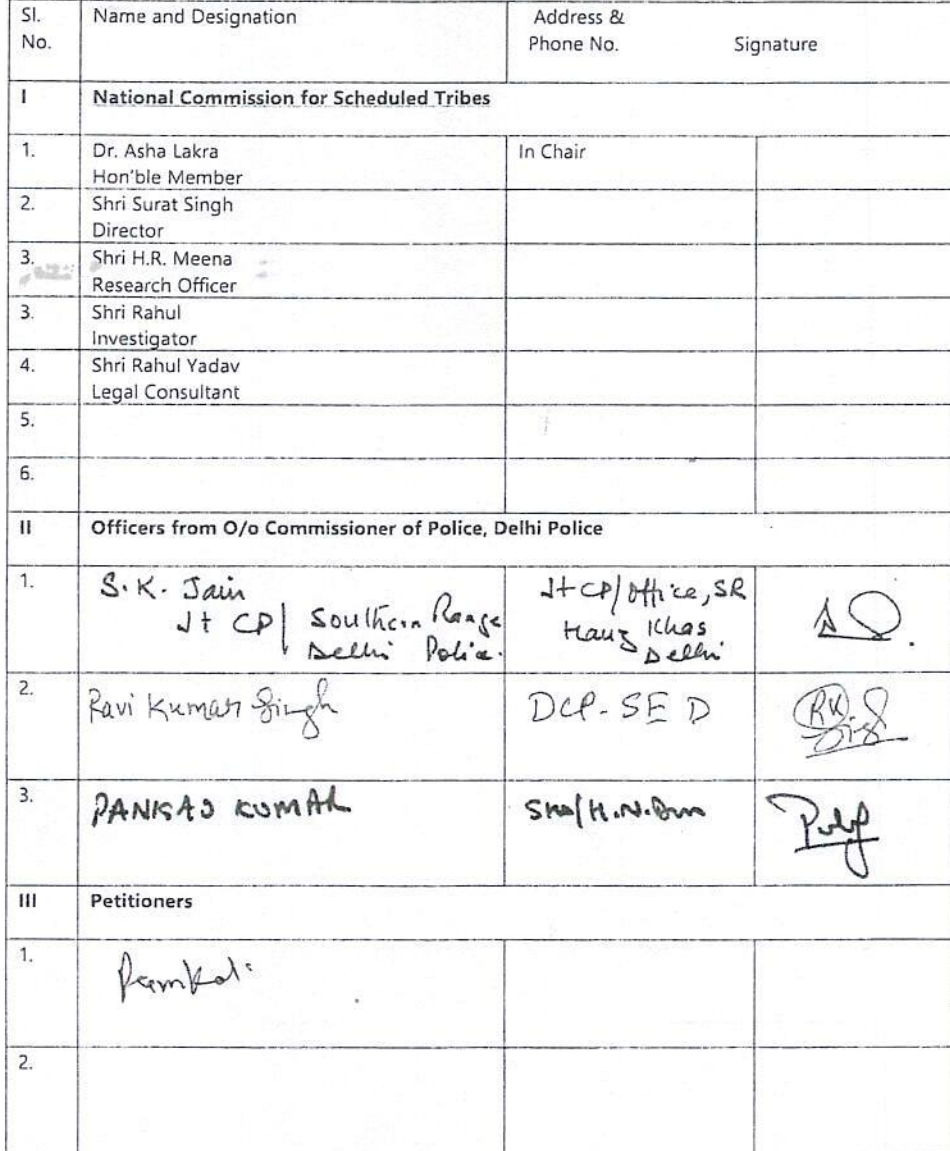 Sl. Name and Designation Address &
No. Phone No. Signature
I National Commission for Scheduled Tribes
1. Dr. Asha Lakra In Chair
Hon'ble Member
2. Shri Surat Singh
Director
3. Shri H.R. Meena
Research Officer
3. Shri Rahul
Investigator
4. Shri Rahul Yadav
Legal Consultant
5.
6.
II Officers from O/o Commissioner of Police, Delhi Police
1. S.K. Jain Jt CP/Office, SR
Jt CP/ Southern Range Hauz Khas
Delhi Police. Delhi
2. Ravi Kumar Singh DCP-SED RK
3. PANKAJ KUMAR SHO/H.N.
III Petitioners
1.
2.